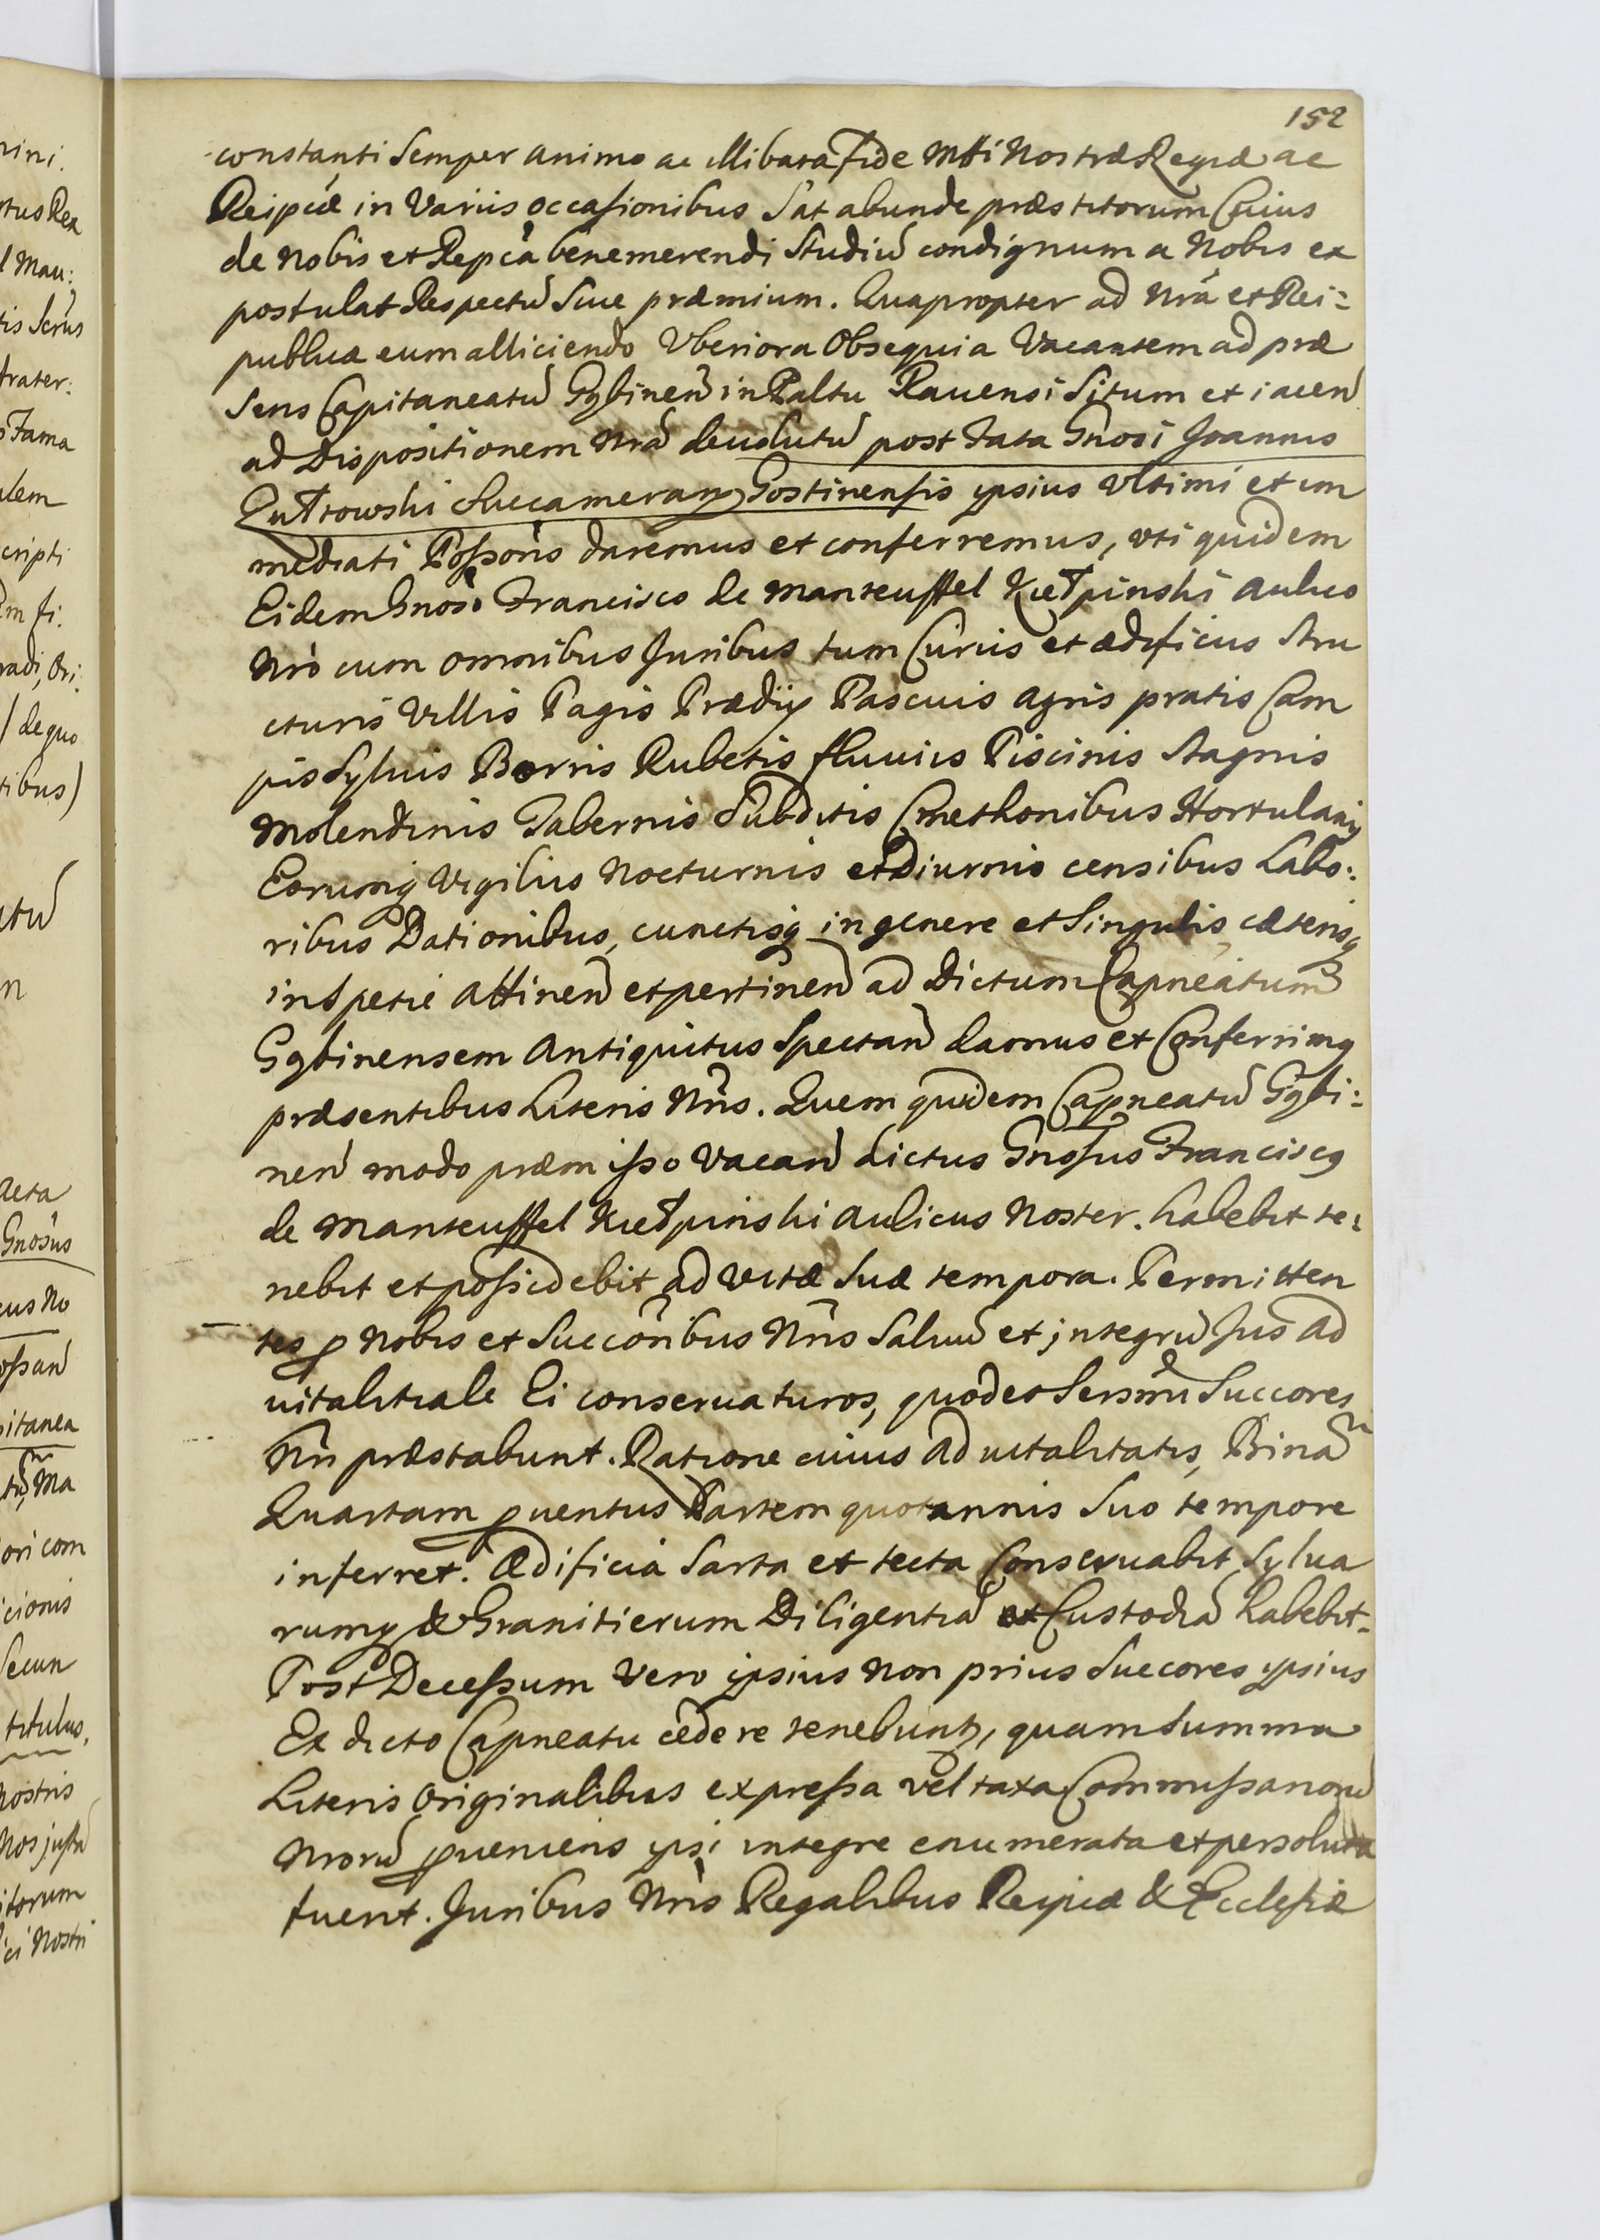 152
constanti Semper animo ac illibata fide Mtti Nostræ Regiæ ac
Reipcæ in Variis occasionibus Sat abunde præstitorum Cuius
de Nobis et Repca benemerendi Studiũ condignum a Nobis ex
postulat Respectũ Siue præmium. Quapropter ad Nrã et Rei-
publicæ eum alliciendo Vberiora Obsequia Vacantem ad præ
sens Capitaneatũ Gąbineñ in Paltu Rauensi Situm et iacen
ad Dispositionem Nrã deuolutũ post Fata Gnosi Joannis
Succamerarij Gostinensis ipsius Vltimi et im
mediati Possoris daremus et conferremus, vti quidem
Eidem Gnoso Francisco de Manteuffel Kiełpinski Aulico
Nro cum omnibus Juribus tum Curiis et ædificiis Stru
cturis Villis Pagis Prædijs Pascuis agris pratis Cam
pis Syluis Borris Rubetis fluuiis Piscinis Stagnis
Molendinis Tabernis Subditis Cmethonibus Hortulanis
Eorumq Vigiliis Nocturnis et Diurnis censibus Labo:
ribus Dationibus, cunctisq in genere et Singulis cæterisq
in Spetie attinen et pertinen ad Dictum Capneatum
Gąbinensem Antiquitus Spectan damus et Conferrimq
præsentibus Literis Nris. Quem quidem Capneatũ Gąbi:
nen modo præmisso Vacan dictus Gnosus Franciscq
de Manteuffel Kiełpinski Aulicus Noster. habebit te:
nebit et possidebit ad Vitæ Suæ tempora. Permitten
tes p Nobis et Succoribus Nris Saluũ et integrũ Jus Ad
uitalitiale Ei conseruaturos, quod et Sersmi Succores
Nri præstabunt. Ratione cuius Aduitalitatis, Binã
Quartam puentus Partem quotannis Suo tempore
inferret. Ædificia Sarta et tecta Conseruabit Sylua
rumq & Granitierum Diligentiã et Custodiã habebit.
Post Decessum Vero ipsius non prius Succores ipsius
Ex dicto Capneatu cedere tenebunt, quam Summa
Literis Originalibus expressa vel taxa Commissariorũ
Nrorũ pueniens ipsi integre enumerata et persoluta
fuerit. Juribus Nris Regalibus Reipcæ & Ecclesiæ